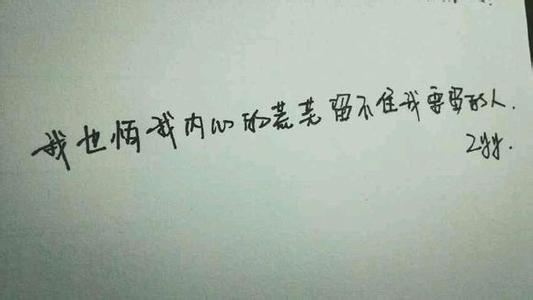 我也怕我内心的荒芜留不住我要留的人.
Zyy.